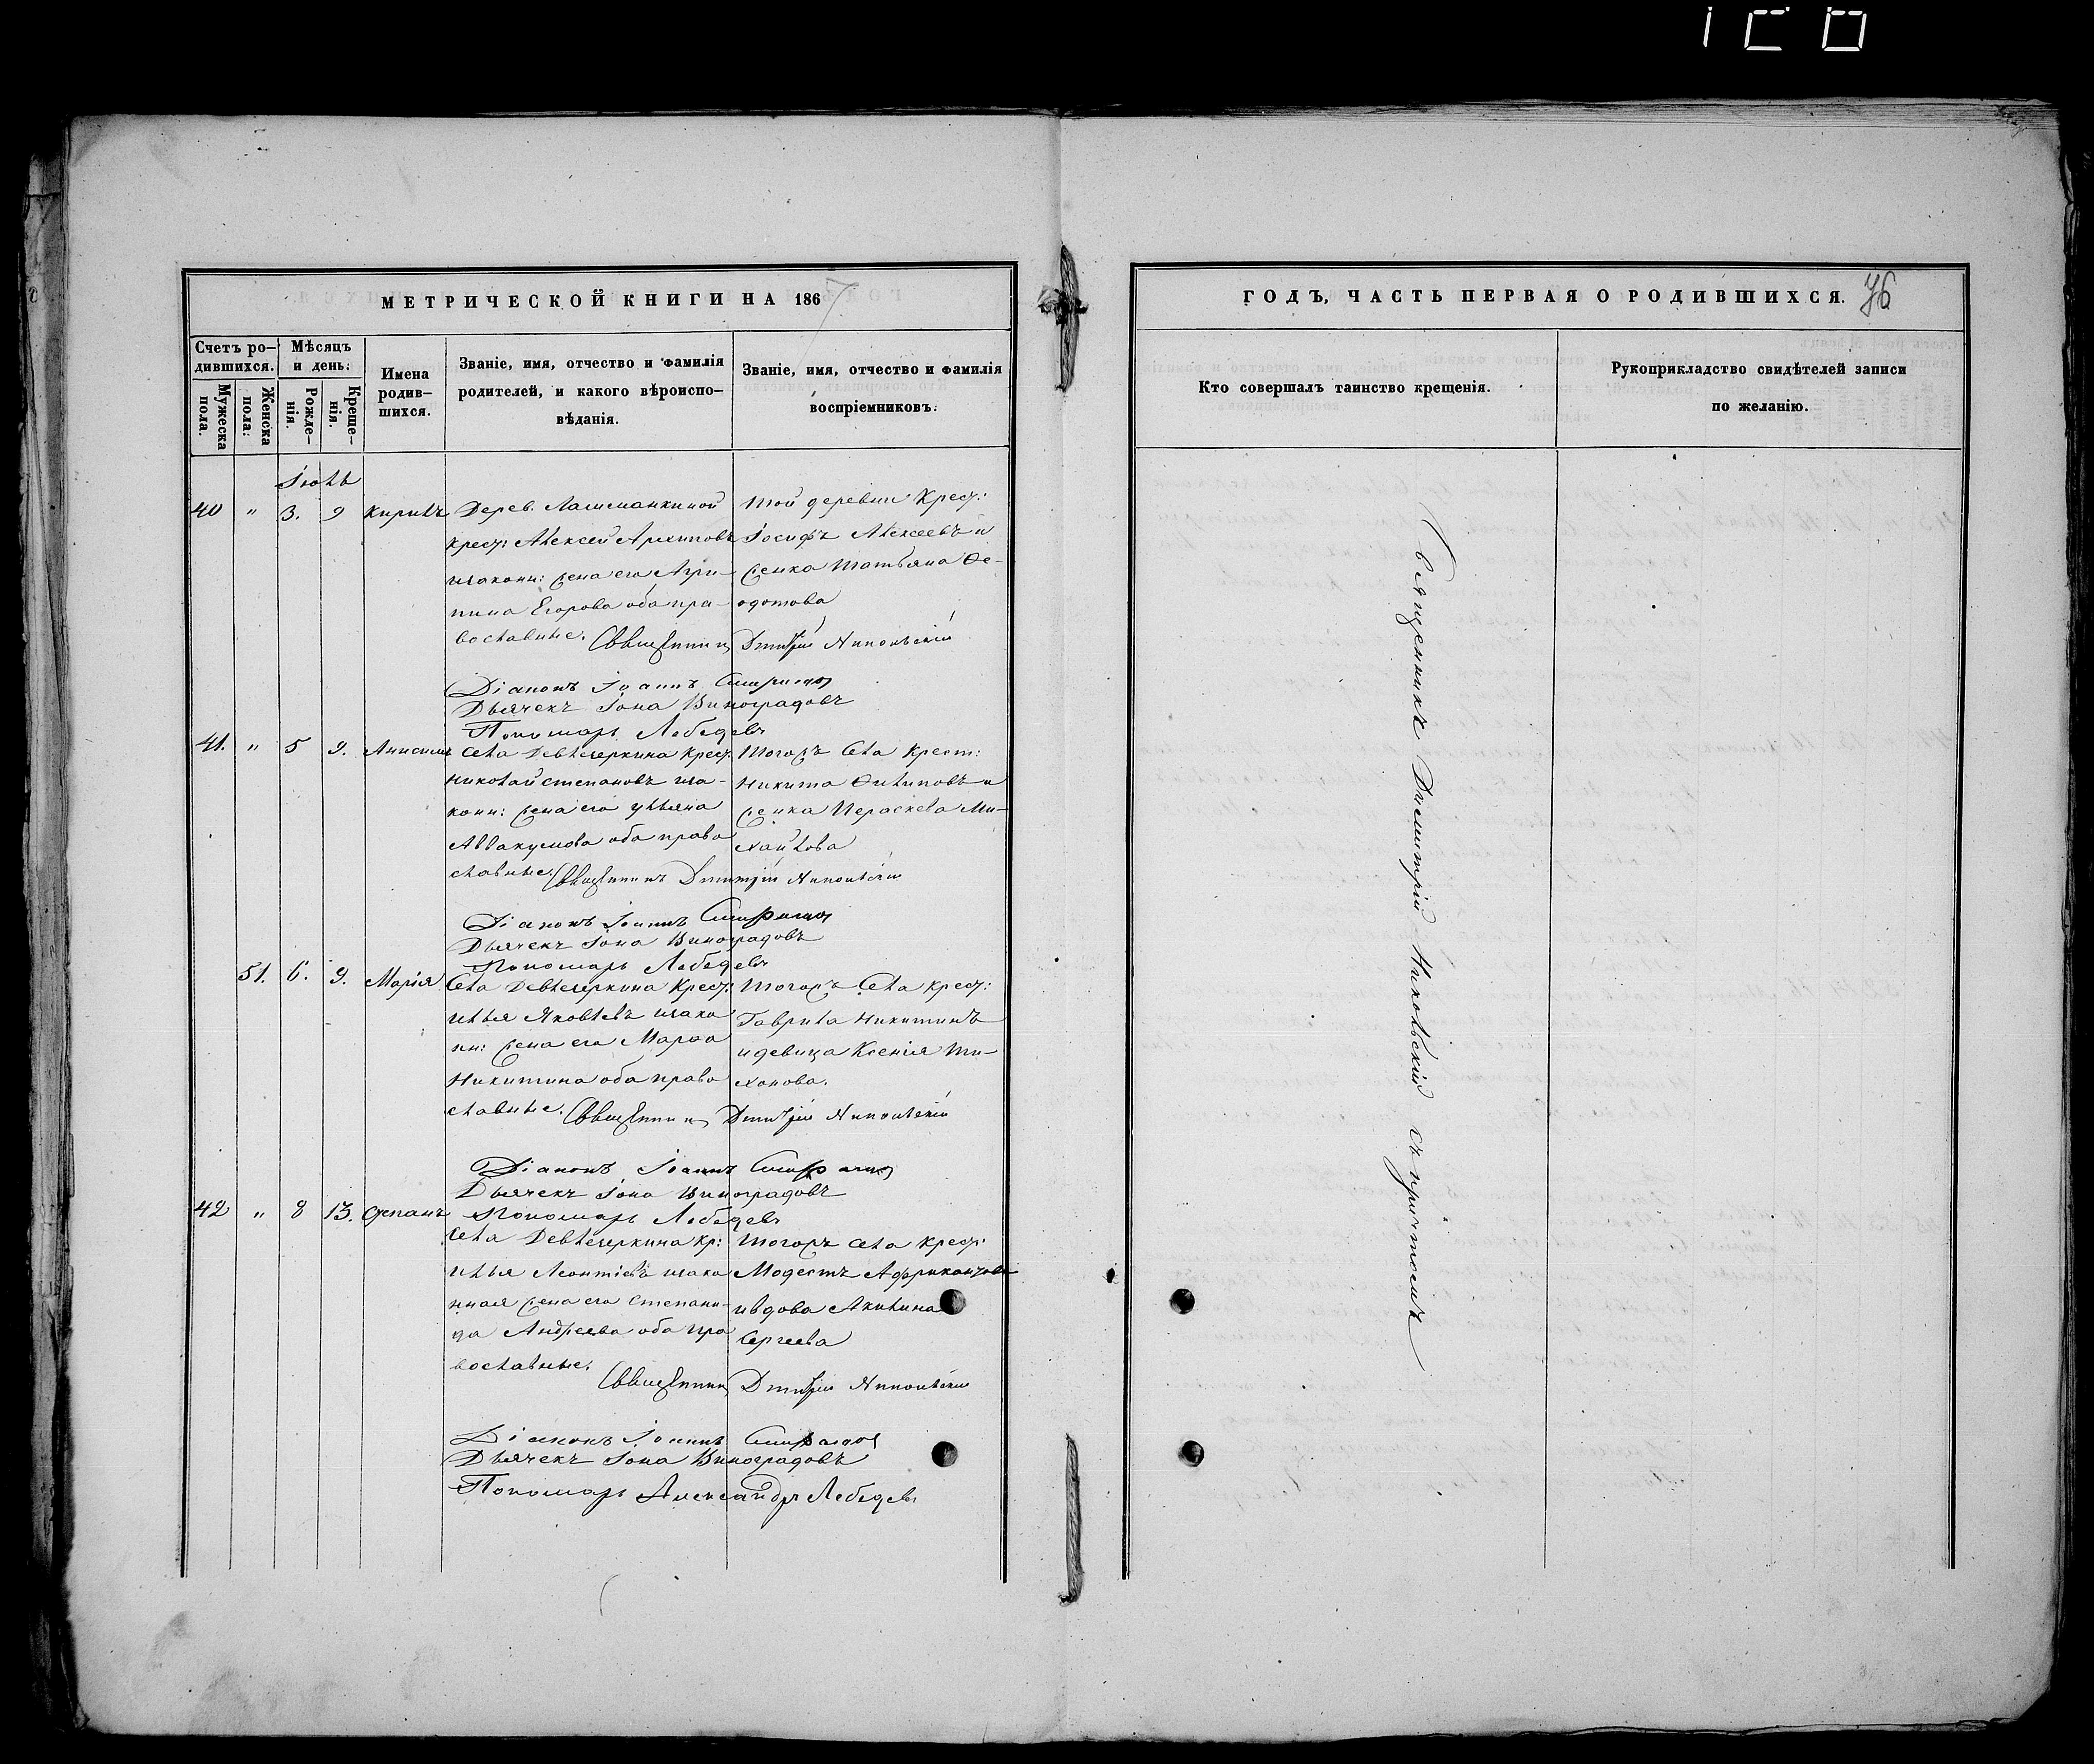 МЕТРИЧЕСКОЙ КНИГИ НА 1867
Счетъ ро-
дившихся.
Мужеска
пола.
Женска
пола:
Мѣсяцъ
и день:
Рожде-
нія.
Креще-
нія.
Имена
родив-
шихся.
Званіе, имя, отчество и фамилія
родителей, и какого вѣроиспо-
вѣданія.
Званіе, имя, отчество и фамилія
воспріемниковъ:
Іюль
40 " 3. 9 Кирилъ
Дерев. Лашманкиной
крест: Алексей Архиповъ
и законн: жена его Агри-
пина Егорова оба пра-
вославные.
Той деревни Крест:
Іосифъ Алексеевъ и
женка Татьяна Ѳе-
дотова
Священникъ Дмитрій Никольскій
Діаконъ Іоаннъ
Дьячекъ Іона Виноградовъ
Пономарь Лебедевъ
41. " 5 9. Анисимъ
Села Девлезеркина Крест.
Николай Степановъ и за-
конн: жена его Ульяна
Аввакумова оба право
славные.
Тогожъ Села Крест:
Никита Филиповъ и
женка Параскева Ми-
хайлова
Священникъ Дмитрій Никольскій
Діаконъ Іоаннъ
Дьячекъ Іона Виноградовъ
Пономарь Лебедевъ
51. 6. 9. Марія
Села Девлезеркина Крест.
Илья Яковлевъ и зако
нн: жена его Марѳа
Никитина оба право
славные.
Тогожъ Села крест:
Гаврила Никитинъ
и девица Ксенія Ти-
хонова.
Священникъ Дмитрій Никольскій
Діаконъ Іоаннъ
Дьячекъ Іона Виноградовъ
Пономарь Лебедевъ
42 " 8 13. Степанъ
Села Девлезеркина кр:
Илья Леонтіевъ и зако
нная жена его Степани-
да Андреева оба пра
вославные.
Тогожъ Села Крест:
Модестъ Африкантовъ
и вдова Акилина
Сергеева
Священникъ Дмитрій Никольскій
Діаконъ Іоаннъ
Дьячекъ Іона Виноградовъ
Пономарь Александръ Лебедевъ
ГОДЪ, ЧАСТЬ ПЕРВАЯ О РОДИВШИХСЯ. 76
Кто совершалъ таинство крещенія.
Рукоприкладство свидѣтелей записи
по желанію.
Священникъ Димитрій Никольскій съ причтомъ